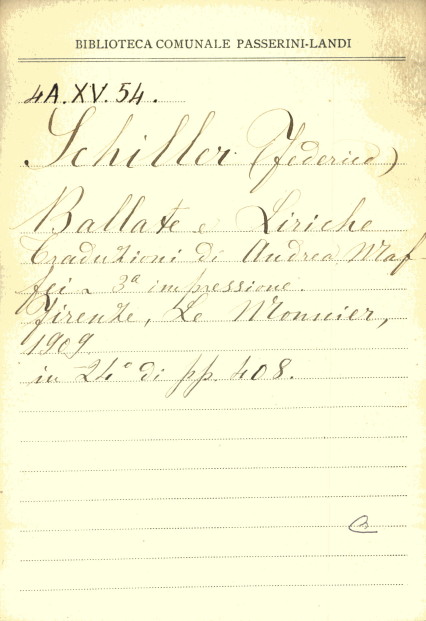 BIBLIOTECA COMUNALE PASSERINI-LANDI
4A.XV.54.
Schiller (Federico)
Ballate e Liriche
Traduzioni di Andrea Maf-
fei ~ 3ª impressione.
Firenze, Le Monnier,
1909
in 24° di pp. 408.